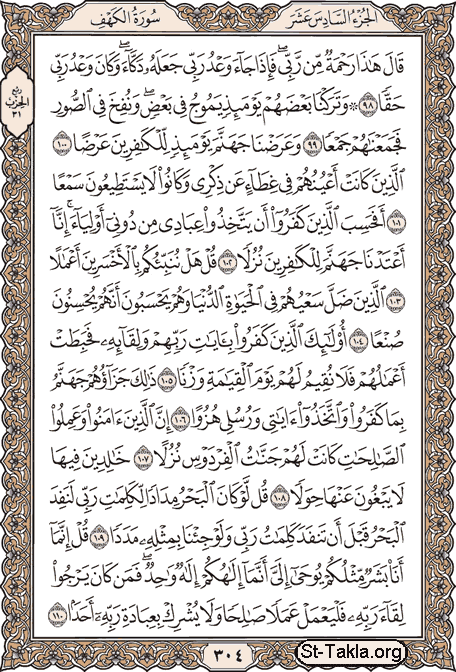 الجزء السادس عشر
سورة الكهف
ربع
الحزب
٣١
قَالَ هَٰذَا رَحْمَةٌ مِّن رَّبِّي ۖ فَإِذَا جَاءَ وَعْدُ رَبِّي جَعَلَهُ دَكَّاءَ ۖ وَكَانَ وَعْدُ رَبِّي
حَقًّا ٩٨ ۞ وَتَرَكْنَا بَعْضَهُمْ يَوْمَئِذٍ يَمُوجُ فِي بَعْضٍ ۖ وَنُفِخَ فِي الصُّورِ
فَجَمَعْنَاهُمْ جَمْعًا ٩٩ وَعَرَضْنَا جَهَنَّمَ يَوْمَئِذٍ لِّلْكَافِرِينَ عَرْضًا ١٠٠
الَّذِينَ كَانَتْ أَعْيُنُهُمْ فِي غِطَاءٍ عَن ذِكْرِي وَكَانُوا لَا يَسْتَطِيعُونَ سَمْعًا
١٠١ أَفَحَسِبَ الَّذِينَ كَفَرُوا أَن يَتَّخِذُوا عِبَادِي مِن دُونِي أَوْلِيَاءَ ۚ إِنَّا
أَعْتَدْنَا جَهَنَّمَ لِلْكَافِرِينَ نُزُلًا ١٠٢ قُلْ هَلْ نُنَبِّئُكُم بِالْأَخْسَرِينَ أَعْمَالًا
١٠٣ الَّذِينَ ضَلَّ سَعْيُهُمْ فِي الْحَيَاةِ الدُّنْيَا وَهُمْ يَحْسَبُونَ أَنَّهُمْ يُحْسِنُونَ
صُنْعًا ١٠٤ أُولَٰئِكَ الَّذِينَ كَفَرُوا بِآيَاتِ رَبِّهِمْ وَلِقَائِهِ فَحَبِطَتْ
أَعْمَالُهُمْ فَلَا نُقِيمُ لَهُمْ يَوْمَ الْقِيَامَةِ وَزْنًا ١٠٥ ذَٰلِكَ جَزَاؤُهُمْ جَهَنَّمُ
بِمَا كَفَرُوا وَاتَّخَذُوا آيَاتِي وَرُسُلِي هُزُوًا ١٠٦ إِنَّ الَّذِينَ آمَنُوا وَعَمِلُوا
الصَّالِحَاتِ كَانَتْ لَهُمْ جَنَّاتُ الْفِرْدَوْسِ نُزُلًا ١٠٧ خَالِدِينَ فِيهَا
لَا يَبْغُونَ عَنْهَا حِوَلًا ١٠٨ قُل لَّوْ كَانَ الْبَحْرُ مِدَادًا لِّكَلِمَاتِ رَبِّي لَنَفِدَ
الْبَحْرُ قَبْلَ أَن تَنفَدَ كَلِمَاتُ رَبِّي وَلَوْ جِئْنَا بِمِثْلِهِ مَدَدًا ١٠٩ قُلْ إِنَّمَا
أَنَا بَشَرٌ مِّثْلُكُمْ يُوحَىٰ إِلَيَّ أَنَّمَا إِلَٰهُكُمْ إِلَٰهٌ وَاحِدٌ ۖ فَمَن كَانَ يَرْجُو
لِقَاءَ رَبِّهِ فَلْيَعْمَلْ عَمَلًا صَالِحًا وَلَا يُشْرِكْ بِعِبَادَةِ رَبِّهِ أَحَدًا ١١٠
٣٠٤
St-Takla.org